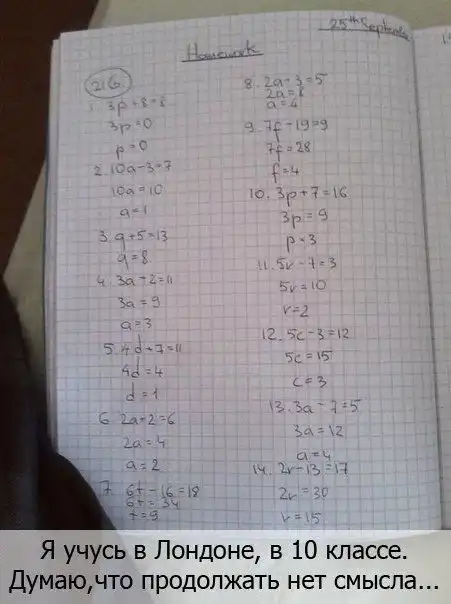 25th September
Homework
216.
1. 3p+8=8
3p=0
p=0
2. 10a-3=7
10a=10
a=1
3. q+5=13
q=8
4. 3a+2=11
3a=9
a=3
5. 4d+7=11
4d=4
d=1
6. 2a+2=6
2a=4
a=2
7. 6t-16=18
6t=34
t=9
8. 2a-3=5
2a=8
a=4
9. 7f-19=9
7f=28
f=4
10. 3p+7=16
3p=9
p=3
11. 5r-7=3
5r=10
r=2
12. 5c-3=12
5c=15
c=3
13. 3a-7=5
3a=12
a=4
14. 2r-13=17
2r=30
r=15
Я учусь в Лондоне, в 10 классе.
Думаю,что продолжать нет смысла...